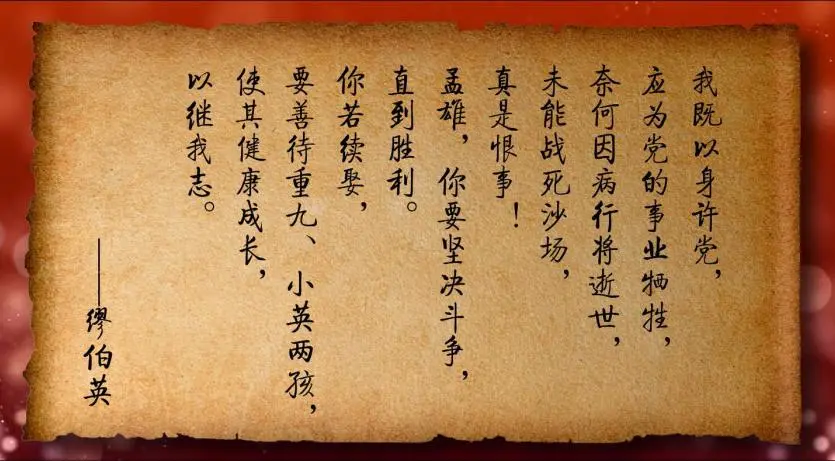 我既以身许党，
应为党的事业牺牲，
奈何因病行将逝世，
未能战死沙场，
真是恨事！
孟雄，你要坚决斗争，
直到胜利。
你若续娶，
要善待重九、小英两孩，
使其健康成长，
以继我志。
——缪伯英